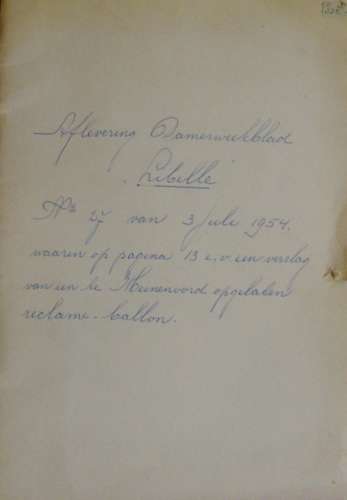 Aflevering Damesweekblad
"Libelle"
No 27 van 3 Juli 1954.
waarin op pagina 13 e.v. een verslag
van een te Meenenvord opgelaten
reclame-ballon.